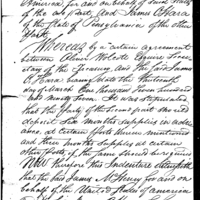 America, for and on behalf of said States
of the one Part, and James O'Hara
of the State of Pennsylvania of the other
Part.
Whereas by a certain agreement
between Oliver Wolcott Esquire Secre-
tary of the Treasury and the said James
O'Hara bearing date the thirteenth
day of March One thousand Seven hundred
and ninety Seven. It was stipulated
that the Party of the Second part should
deposit Six months supplies in advan-
ance, at certain Posts therein mentioned
and three months Supplies at certain
other Posts, if the same should be required
NOW therefore this Indenture Witnesseth
that the said James McHenry for and on
behalf of the United States of America